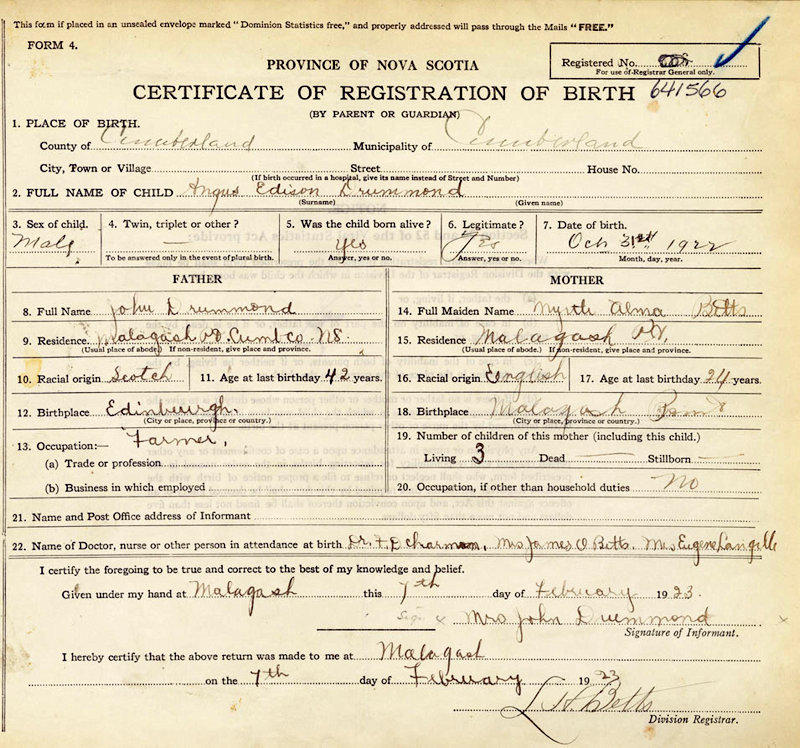 This form if placed in an unsealed envelope marked "Dominion Statistics free," and properly addressed will pass through the Mails "FREE."
FORM 4.
Registered No.
For use of Registrar General only.
PROVINCE OF NOVA SCOTIA
CERTIFICATE OF REGISTRATION OF BIRTH 641566
(BY PARENT OR GUARDIAN)
1. PLACE OF BIRTH.
County of Cumberland Municipality of Cumberland
City, Town or Village Street House No.
(If birth occurred in a hospital, give its name instead of Street and Number)
2. FULL NAME OF CHILD Angus Edison Drummond
(Surname) (Given name)
3. Sex of child. 4. Twin, triplet or other? 5. Was the child born alive? 6. Legitimate? 7. Date of birth.
Male — Yes Yes Oct 31st 1922
To be answered only in the event of plural birth. Answer, yes or no. Answer, yes or no. Month, day, year.
FATHER MOTHER
8. Full Name John Drummond
14. Full Maiden Name Myrtle Alma Betts
9. Residence. Malagash Cumb co. NS
(Usual place of abode) If non-resident, give place and province.
15. Residence Malagash
(Usual place of abode.) If non-resident, give place and province.
10. Racial origin Scotch 11. Age at last birthday 42 years.
16. Racial origin English 17. Age at last birthday 24 years.
12. Birthplace Edinburgh.
(City or place, province or country.)
18. Birthplace Malagash
(City or place, province or country.)
13. Occupation:— Farmer,
(a) Trade or profession
(b) Business in which employed
19. Number of children of this mother (including this child.)
Living 3 Dead — Stillborn —
20. Occupation, if other than household duties No
21. Name and Post Office address of Informant
22. Name of Doctor, nurse or other person in attendance at birth Dr. F. D Charman, Mrs James O Betts. Mrs Eugene Langille
I certify the foregoing to be true and correct to the best of my knowledge and belief.
Given under my hand at Malagash this 7th day of February 1923.
Sig. x Mrs John Drummond x
Signature of Informant.
I hereby certify that the above return was made to me at Malagash
on the 7th day of February 1923
Betts
Division Registrar.